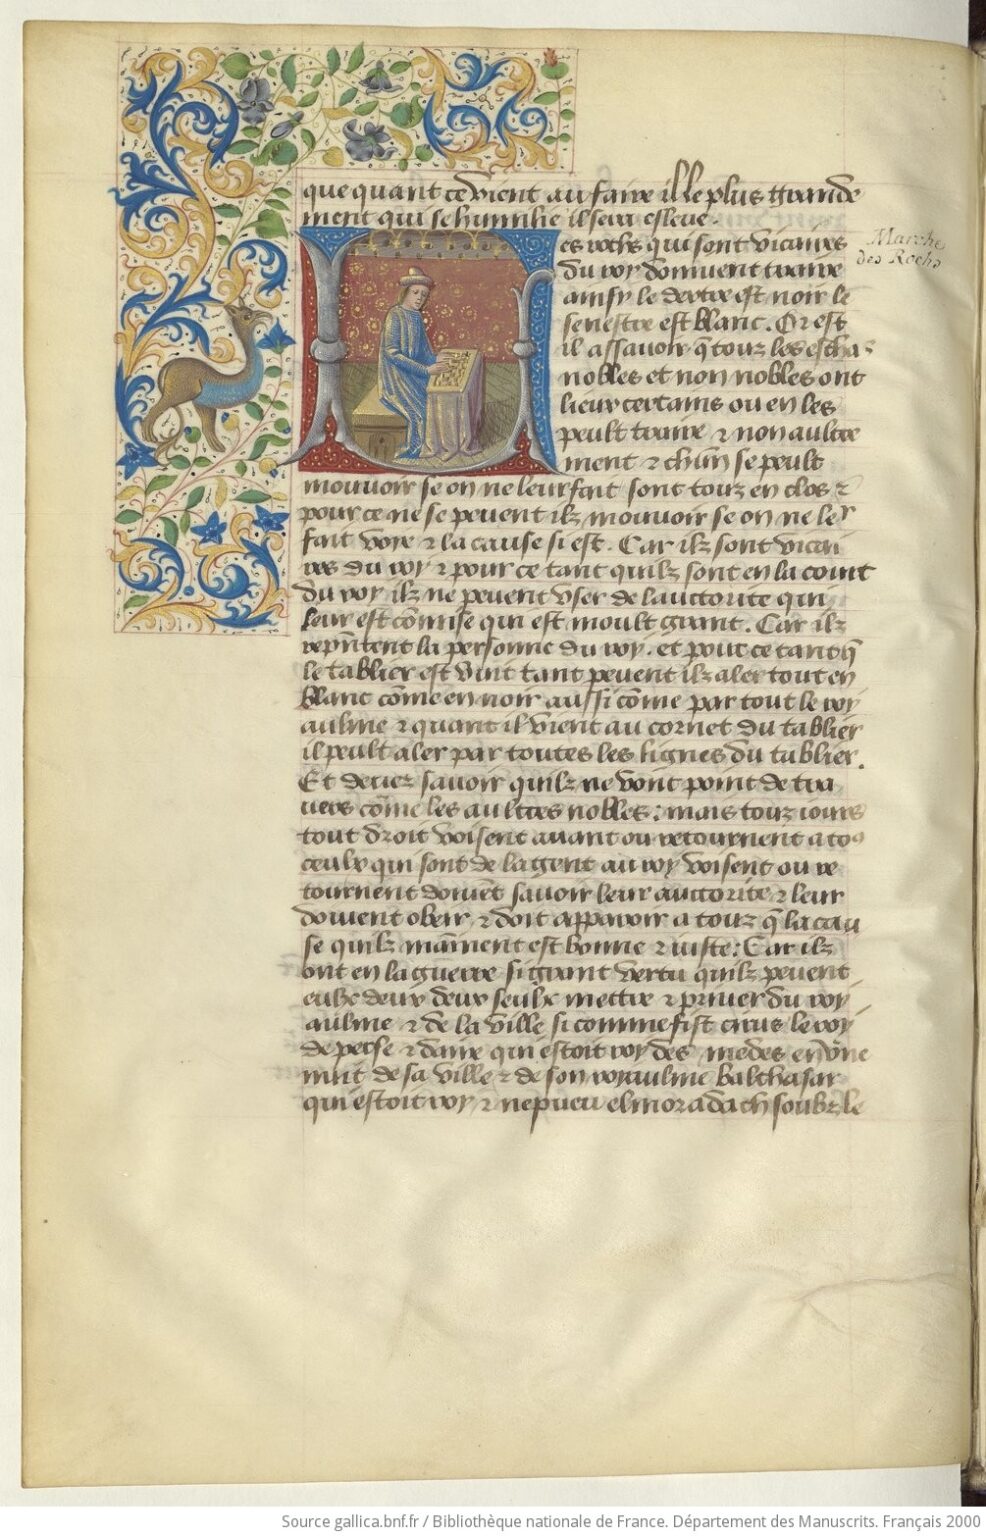 que quant ce vient au faire il le plus grande
ment qui se humilie il sera esleue.
Marche
des Rochs
es rochs qui sont vicaires
du roy doiuuent traire
ainsy le dextre est noir le
senestre est blanc. Or est
il assauoir q̄ touz les escha
nobles et non nobles ont
lieux certains ou en les
peult traire ⁊ non aultre
ment ⁊ chūn se peult
mouuoir se on ne leur fait sont touz en clos ⁊
pour ce ne se peuent ilz mouuoir se on ne leʳ
fait voye ⁊ la cause si est. Car ilz sont vicai
res du roy ⁊ pour ce tant quilz sont en la court
du roy ilz ne peuent vser de lauctorite qui
leur est cōmise qui est moult grant. Car ilz
rep̄ntent la personne du roy. et pour ce tant q̄
le tablier est vuit tant peuent ilz aler tout en
blanc cōme en noir aussi cōme par tout le roy
aulme ⁊ quant il vient au cornet du tablier
il peult aler par toutes les lignes du tablier.
Et deuez sauoir quilz ne vont point de tra
uers cōme les aultres nobles: mais touz iours
tout droit voisent auant ou retournent a toꝰ
ceulx qui sont de la gent au roy voisent ou re
tournent doiuēt sauoir leur auctorite ⁊ leur
doiuent obeir ⁊ doit apparoir a touz q̄ la cau
se quilz mainnent est bonne ⁊ iuste: Car ilz
ont en la guerre si grant vertu quilz peuent
eulx deux deux seulx mettre ⁊ priuer du roy
aulme ⁊ de la ville si comme fist cirus le roy
de perse ⁊ daire qui estoit roy des medes en vne
nuit de sa ville ⁊ de son royaulme balthasar
qui estoit roy ⁊ nepueu elmoradach soubz le
Source gallica.bnf.fr / Bibliothèque nationale de France. Département des Manuscrits. Français 2000